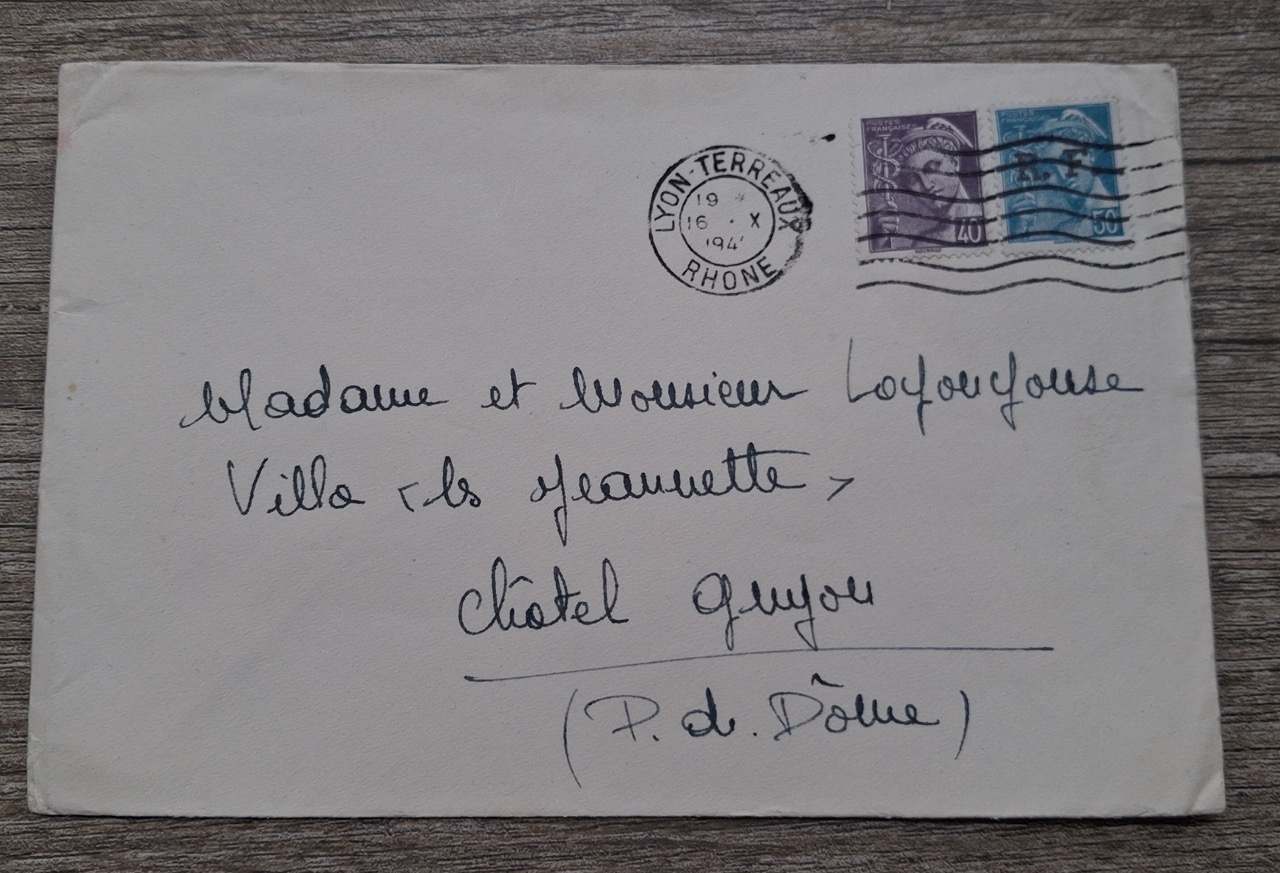 POSTES FRANÇAISES
40
POSTES FRANÇAISES
R.F.
50
LYON-TERREAUX
19 *
16 · X
194
RHONE
Madame et Monsieur Lafoufouse
Villa < les Jeannette >
Châtel Guyon
(P. d. Dôme)